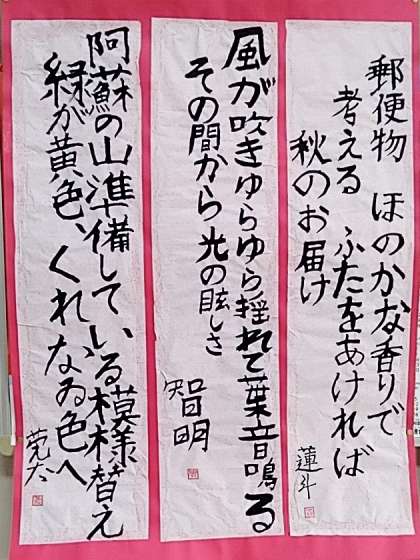 郵便物 ほのかな香りで
考える ふたをあければ
秋のお届け
蓮斗
風が吹きゆらゆら揺れて葉音鳴る
その間から光の眩しさ
智明
阿蘇の山準備している模様替え
緑が黄色、くれなゐ色へ